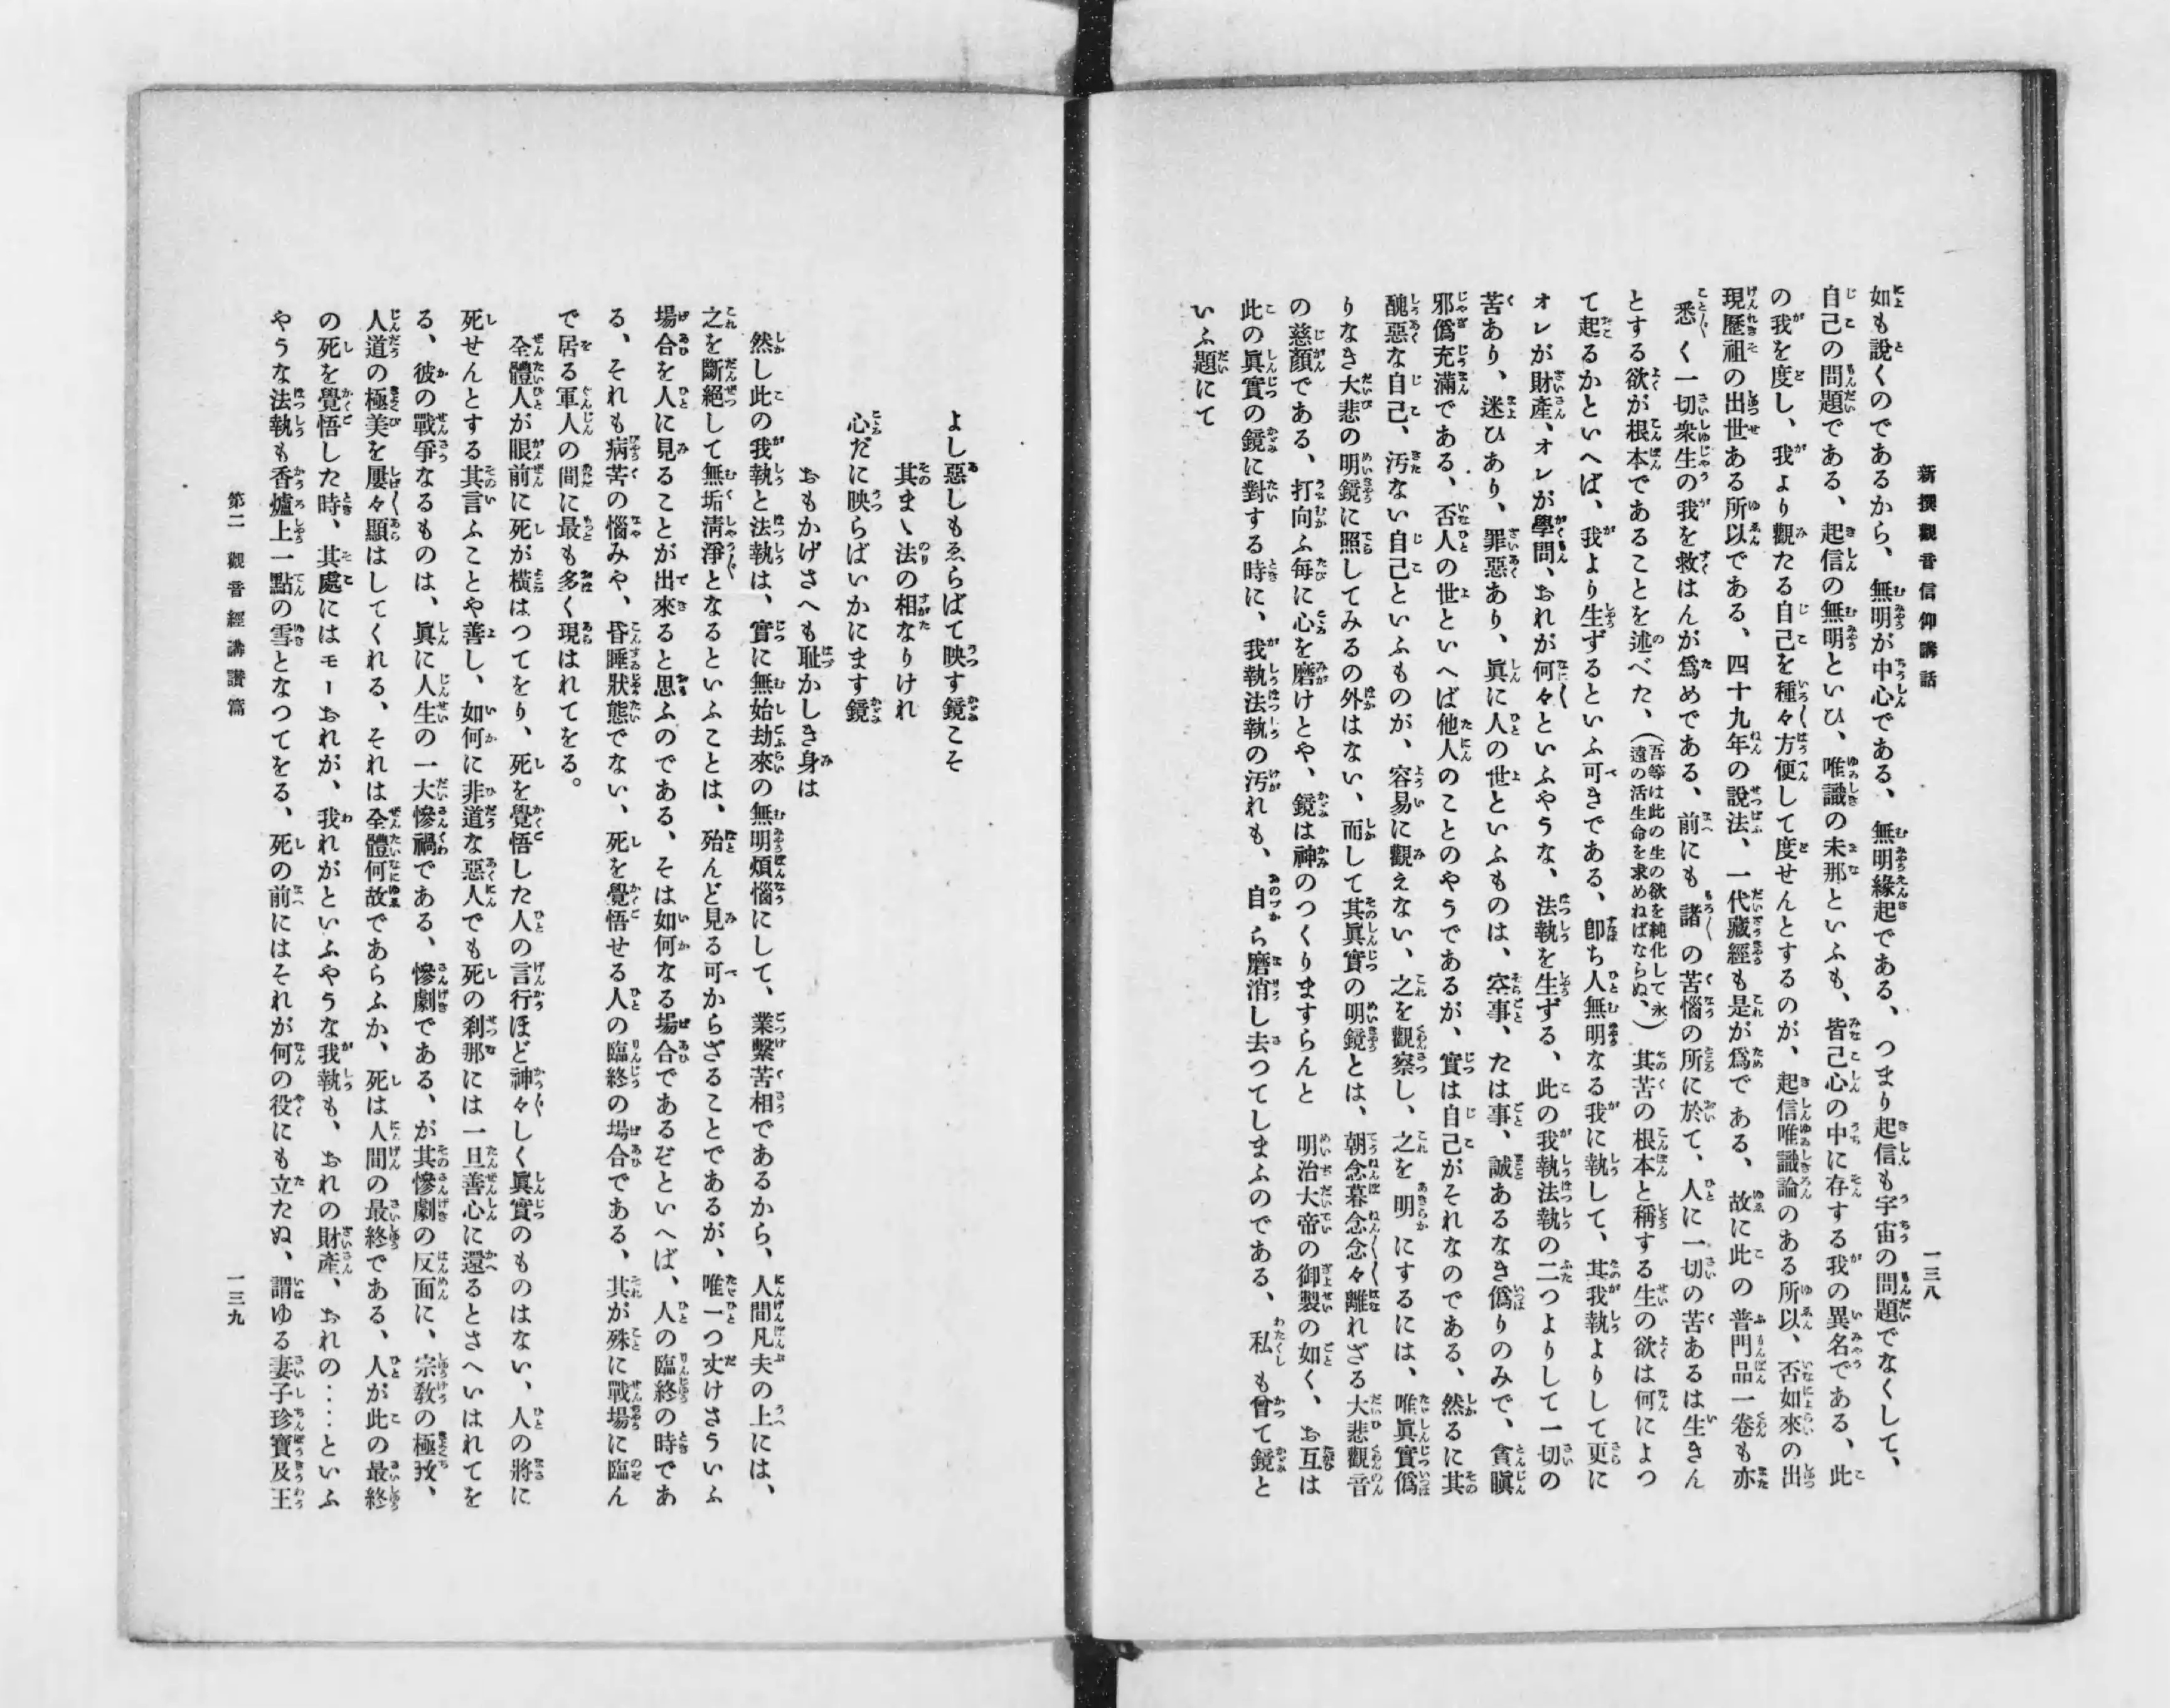 新撰觀音信仰講話
一三八
如も說くのであるから、無明が中心である、無明緣起である、つまり起信も宇宙の問題でなくして、
自己の問題である、起信の無明といひ、唯識の末那といふも、皆己心の中に存する我の異名である、此
の我を度し、我より觀たる自己を種々方便して度せんとするのが、起信唯識論のある所以、否如來の出
現歷祖の出世ある所以である、四十九年の說法、一代藏經も是が爲である、故に此の普門品一卷も亦
悉く一切衆生の我を救はんが爲めである、前にも諸の苦惱の所に於て、人に一切の苦あるは生きん
とする欲が根本であることを述べた、（吾等は此の生の欲を純化して永遠の活生命を求めねばならぬ、）其苦の根本と稱する生の欲は何によつ
て起るかといへば、我より生ずるといふ可きである、卽ち人無明なる我に執して、其我執よりして更に
オレが財產、オレが學問、おれが何々といふやうな、法執を生ずる、此の我執法執の二つよりして一切の
苦あり、迷ひあり、罪惡あり、眞に人の世といふものは、空事、たは事、誠あるなき僞りのみで、貪瞋
邪僞充滿である、否人の世といへば他人のことのやうであるが、實は自己がそれなのである、然るに其
醜惡な自己、汚ない自己といふものが、容易に觀えない、之を觀察し、之を明にするには、唯眞實僞
りなき大悲の明鏡に照してみるの外はない、而して其眞實の明鏡とは、朝念暮念念々離れざる大悲觀音
の慈顏である、打向ふ每に心を磨けとや、鏡は神のつくりますらんと 明治大帝の御製の如く、お互は
此の眞實の鏡に對する時に、我執法執の汚れも、自ら磨消し去つてしまふのである、私も曾て鏡と
いふ題にて
よし惡しもゑらばて映す鏡こそ
其まゝ法の相なりけれ
心だに映らばいかにます鏡
おもかげさへも耻かしき身は
然し此の我執と法執は、實に無始劫來の無明煩惱にして、業繫苦相であるから、人間凡夫の上には、
之を斷絕して無垢淸淨となるといふことは、殆んど見る可からざることであるが、唯一つ丈けさういふ
場合を人に見ることが出來ると思ふのである、そは如何なる場合であるぞといへば、人の臨終の時であ
る、それも病苦の惱みや、昏睡狀態でない、死を覺悟せる人の臨終の場合である、其が殊に戰場に臨ん
で居る軍人の間に最も多く現はれてをる。
全體人が眼前に死が橫はつてをり、死を覺悟した人の言行ほど神々しく眞實のものはない、人の將に
死せんとする其言ふことや善し、如何に非道な惡人でも死の刹那には一旦善心に還るとさへいはれてを
る、彼の戰爭なるものは、眞に人生の一大慘禍である、慘劇である、が其慘劇の反面に、宗敎の極致、
人道の極美を屢々顯はしてくれる、それは全體何故であらふか、死は人間の最終である、人が此の最終
の死を覺悟した時、其處にはモーおれが、我れがといふやうな我執も、おれの財產、おれの‥‥といふ
やうな法執も香爐上一點の雪となつてをる、死の前にはそれが何の役にも立たぬ、謂ゆる妻子珍寶及王
第二 觀音經講讃篇
一三九